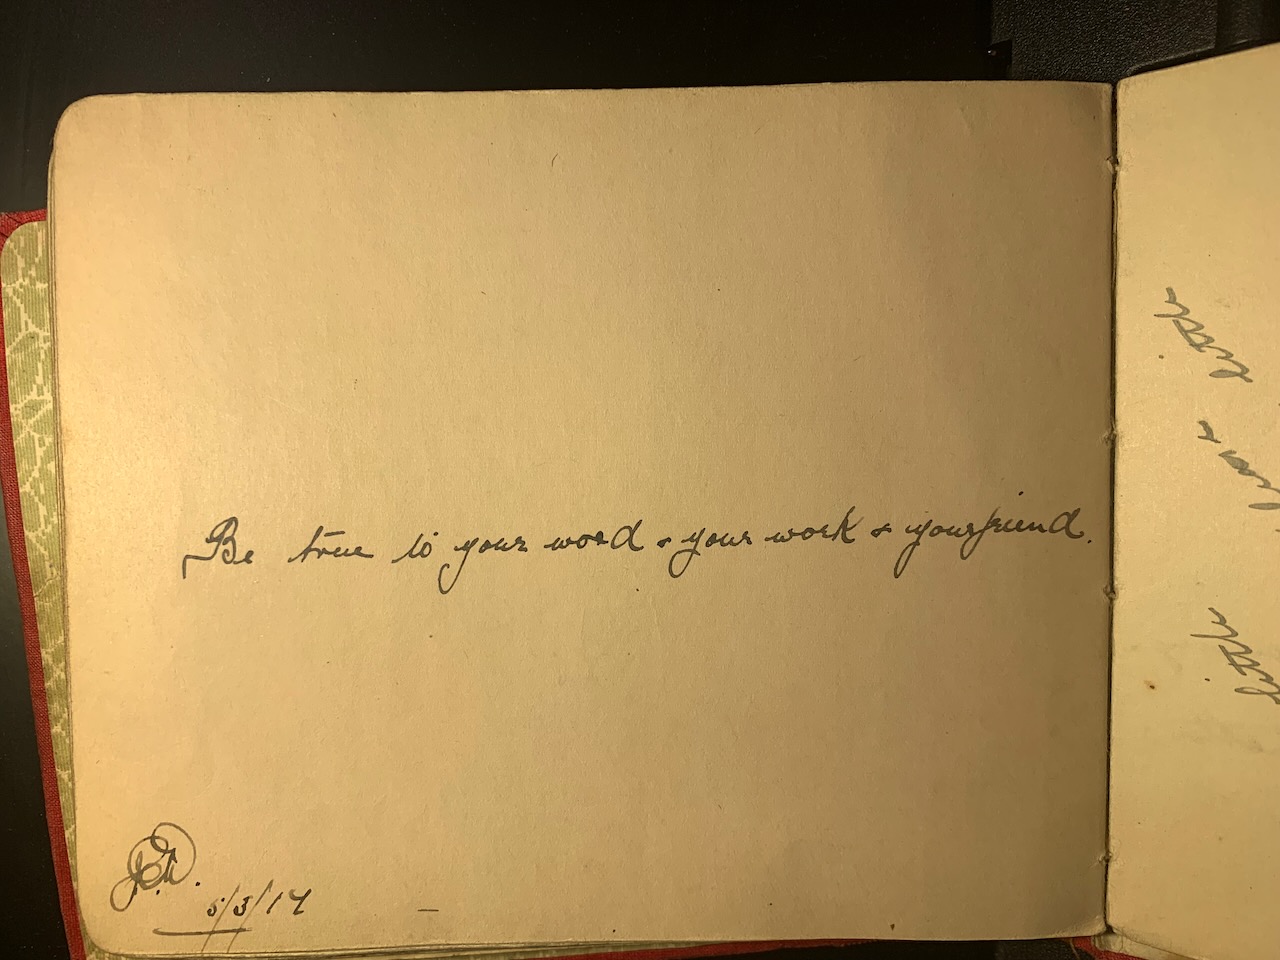 Be true to your word & your work & your friend.
5/3/14
little
little